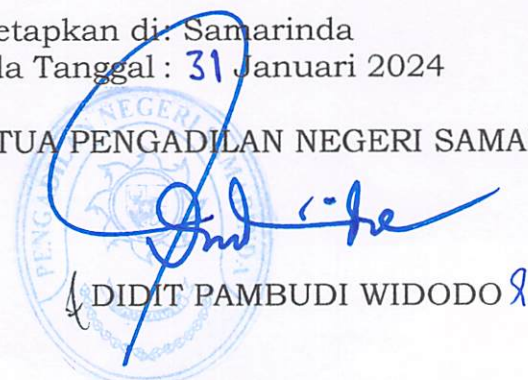 etapkan di: Samarinda
da Tanggal : 31 Januari 2024
TUA PENGADILAN NEGERI SAMA
PENGADILAN NEGERI
DIDIT PAMBUDI WIDODO